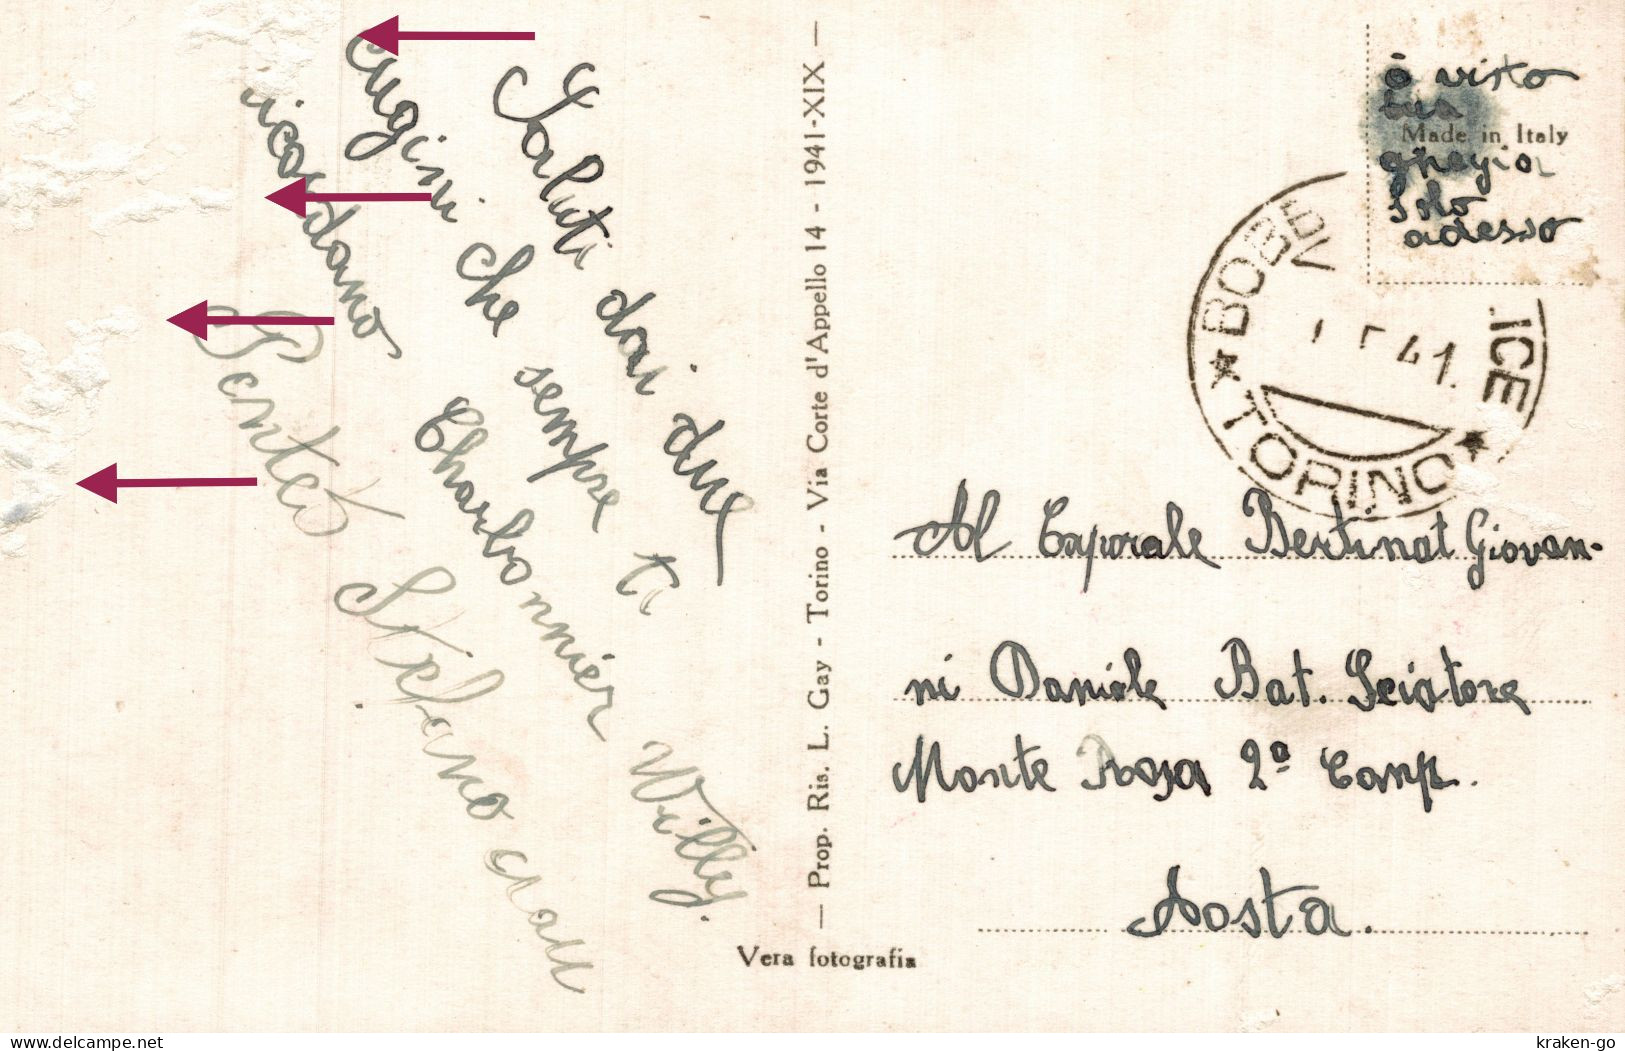 Saluti dai due
cugini che sempre ti
ricordano
Charbonnier Willy.
Stefano
— Prop. Ris. L. Gay - Torino - Via Corte d'Appello 14 - 1941-XIX —
Vera fotografia
ò visto
tua
Made in Italy
Solo
adesso
BOBB ICE
41.
* TORINO *
Al Caporale Bertinat Giovan-
ni Daniele Bat. Sciatore
Monte Rosa 2ª Comp.
Aosta.
www.delcampe.net
kraken-go